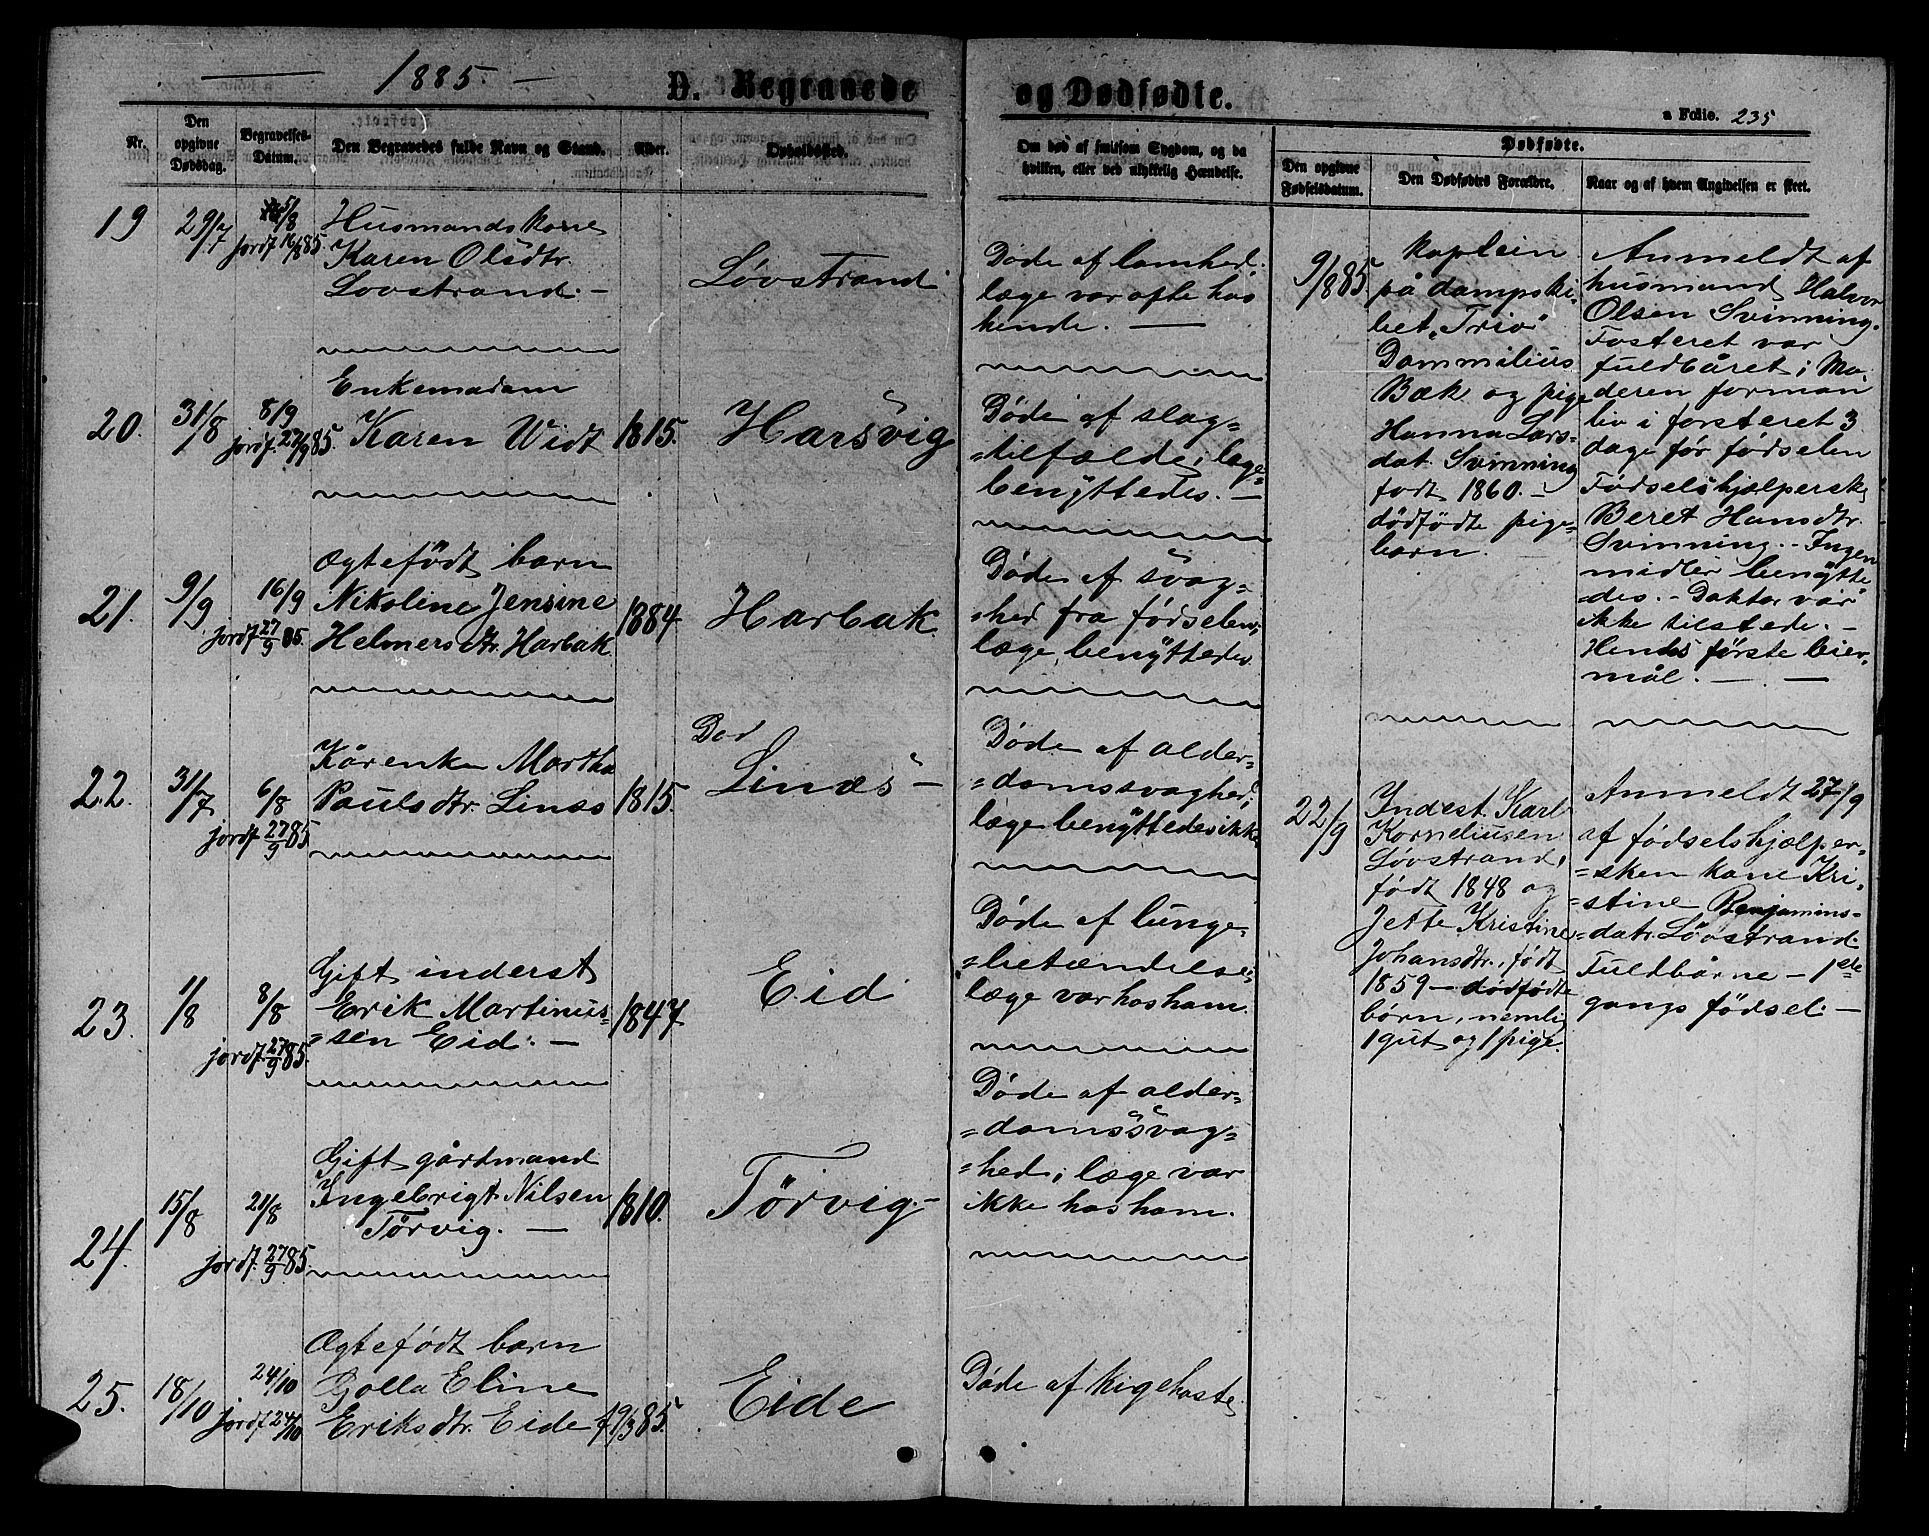 1885.
D. Begravede og Dødfødte.
a Folio. 235
Nr.
Den opgivne Dødsdag.
Begravelses-Datum.
Den Begravedes fulde Navn og Stand.
Alder.
Opholdssted.
Om død af smitsom Sygdom, og da
hvilken, eller ved ulykkelig Hændelse.
Dødfødte.
Den opgivne Fødselsdatum.
Den Dødfødtes Forældre.
Naar og af hvem Angivelsen er skeet.
19
29/7
5/8
jordf. 16/8 85
Husmandskone
Karen Olsdtr.
Lovstrand. -
Løvstrand
Døde af lamhed.
læge var ofte hos
hende. -
20.
31/8
8/9
jordf. 27/9 85.
Enkemadam
Karen Widt
1815.
Harsvig
Døde af slag-
=tilfælde, læge
benyttedes. -
21.
9/9
16/9
jordf. 27/9 85.
Ægtefödt barn
Nikoline Jensine
Helmersdtr. Harbak
1884
Harbak
Døde af svag-
=hed fra fødselen,
læge benyttedes
22.
31/7
6/8
jordf. 27/9 85
Kårenke Martha
Paulsdtr. Linæs
1815.
Linæs -
Døde af alder-
=domssvaghed,
læge benyttedes ikke
23.
1/8
8/8
jordf. 27/9 85.
Gift inderst
Erik Martinus-
=sen Eid. -
1847
Eid
Døde af lunge-
=betændelse,
læge var hos ham.
24.
15/8
21/8
jordf. 27/9 85.
Gift gårdmand
Ingebrigt Nilsen
Törvig. -
1810.
Törvig -
Døde af alder-
=domssvag=
=hed, læge var
ikke hos ham.
25.
18/10
24/10
jordf 24/10
Ægtefødt barn
Golla Eline
Eriksdtr. Eide
f 9/3 85.
Eide
Døde af kigehoste
9/8 85
kaptein
på dampski-
bet "Trio"
Dommilius
Bæk og pige
Hanna Lars-
dat. Svinning
født 1860. -
dödfödte pige-
barn.
Anmeldt af
husmand Halvor
Olsen Svinning.
Fosteret var
fuldbåret i Mo-
deren forman
liv i fosteret 3
dage før fødselen
Fødselshjælperske
Beret Hansdtr.
Svinning. - Ingen
midler benytte
=des. - Doktor var
ikke tilstede. -
Hendes første leier-
mål. -
22/9
Inderst Karl
Korneliusen
Løvstrand,
født 1848 og
Jette Kristine
Johansdtr., født
1859 - dødfødte
børn, nemlig
1 gut og 1 pige.
Anmeldt 27/9
af fødselshjælper-
=sken kone Kri-
=stine Benjamins-
=datr. Lövstrand.
Fuldbårne - 1ste
gangs fødsel. -